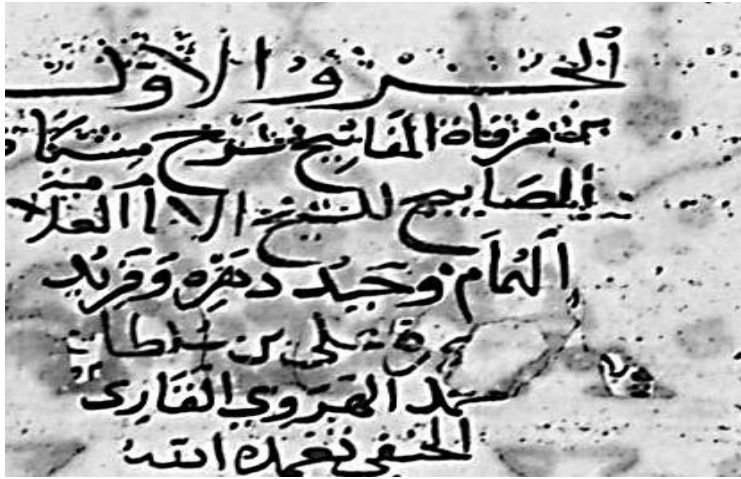 الجزء الاول
من مرقاة المفاتيح شرح مشكاة
المصابيح للشيخ الامام العلامة
الهمام وحيد دهره وفريد
عصره علي بن سلطان
محمد الهروي القاري
الحنفي تغمده الله